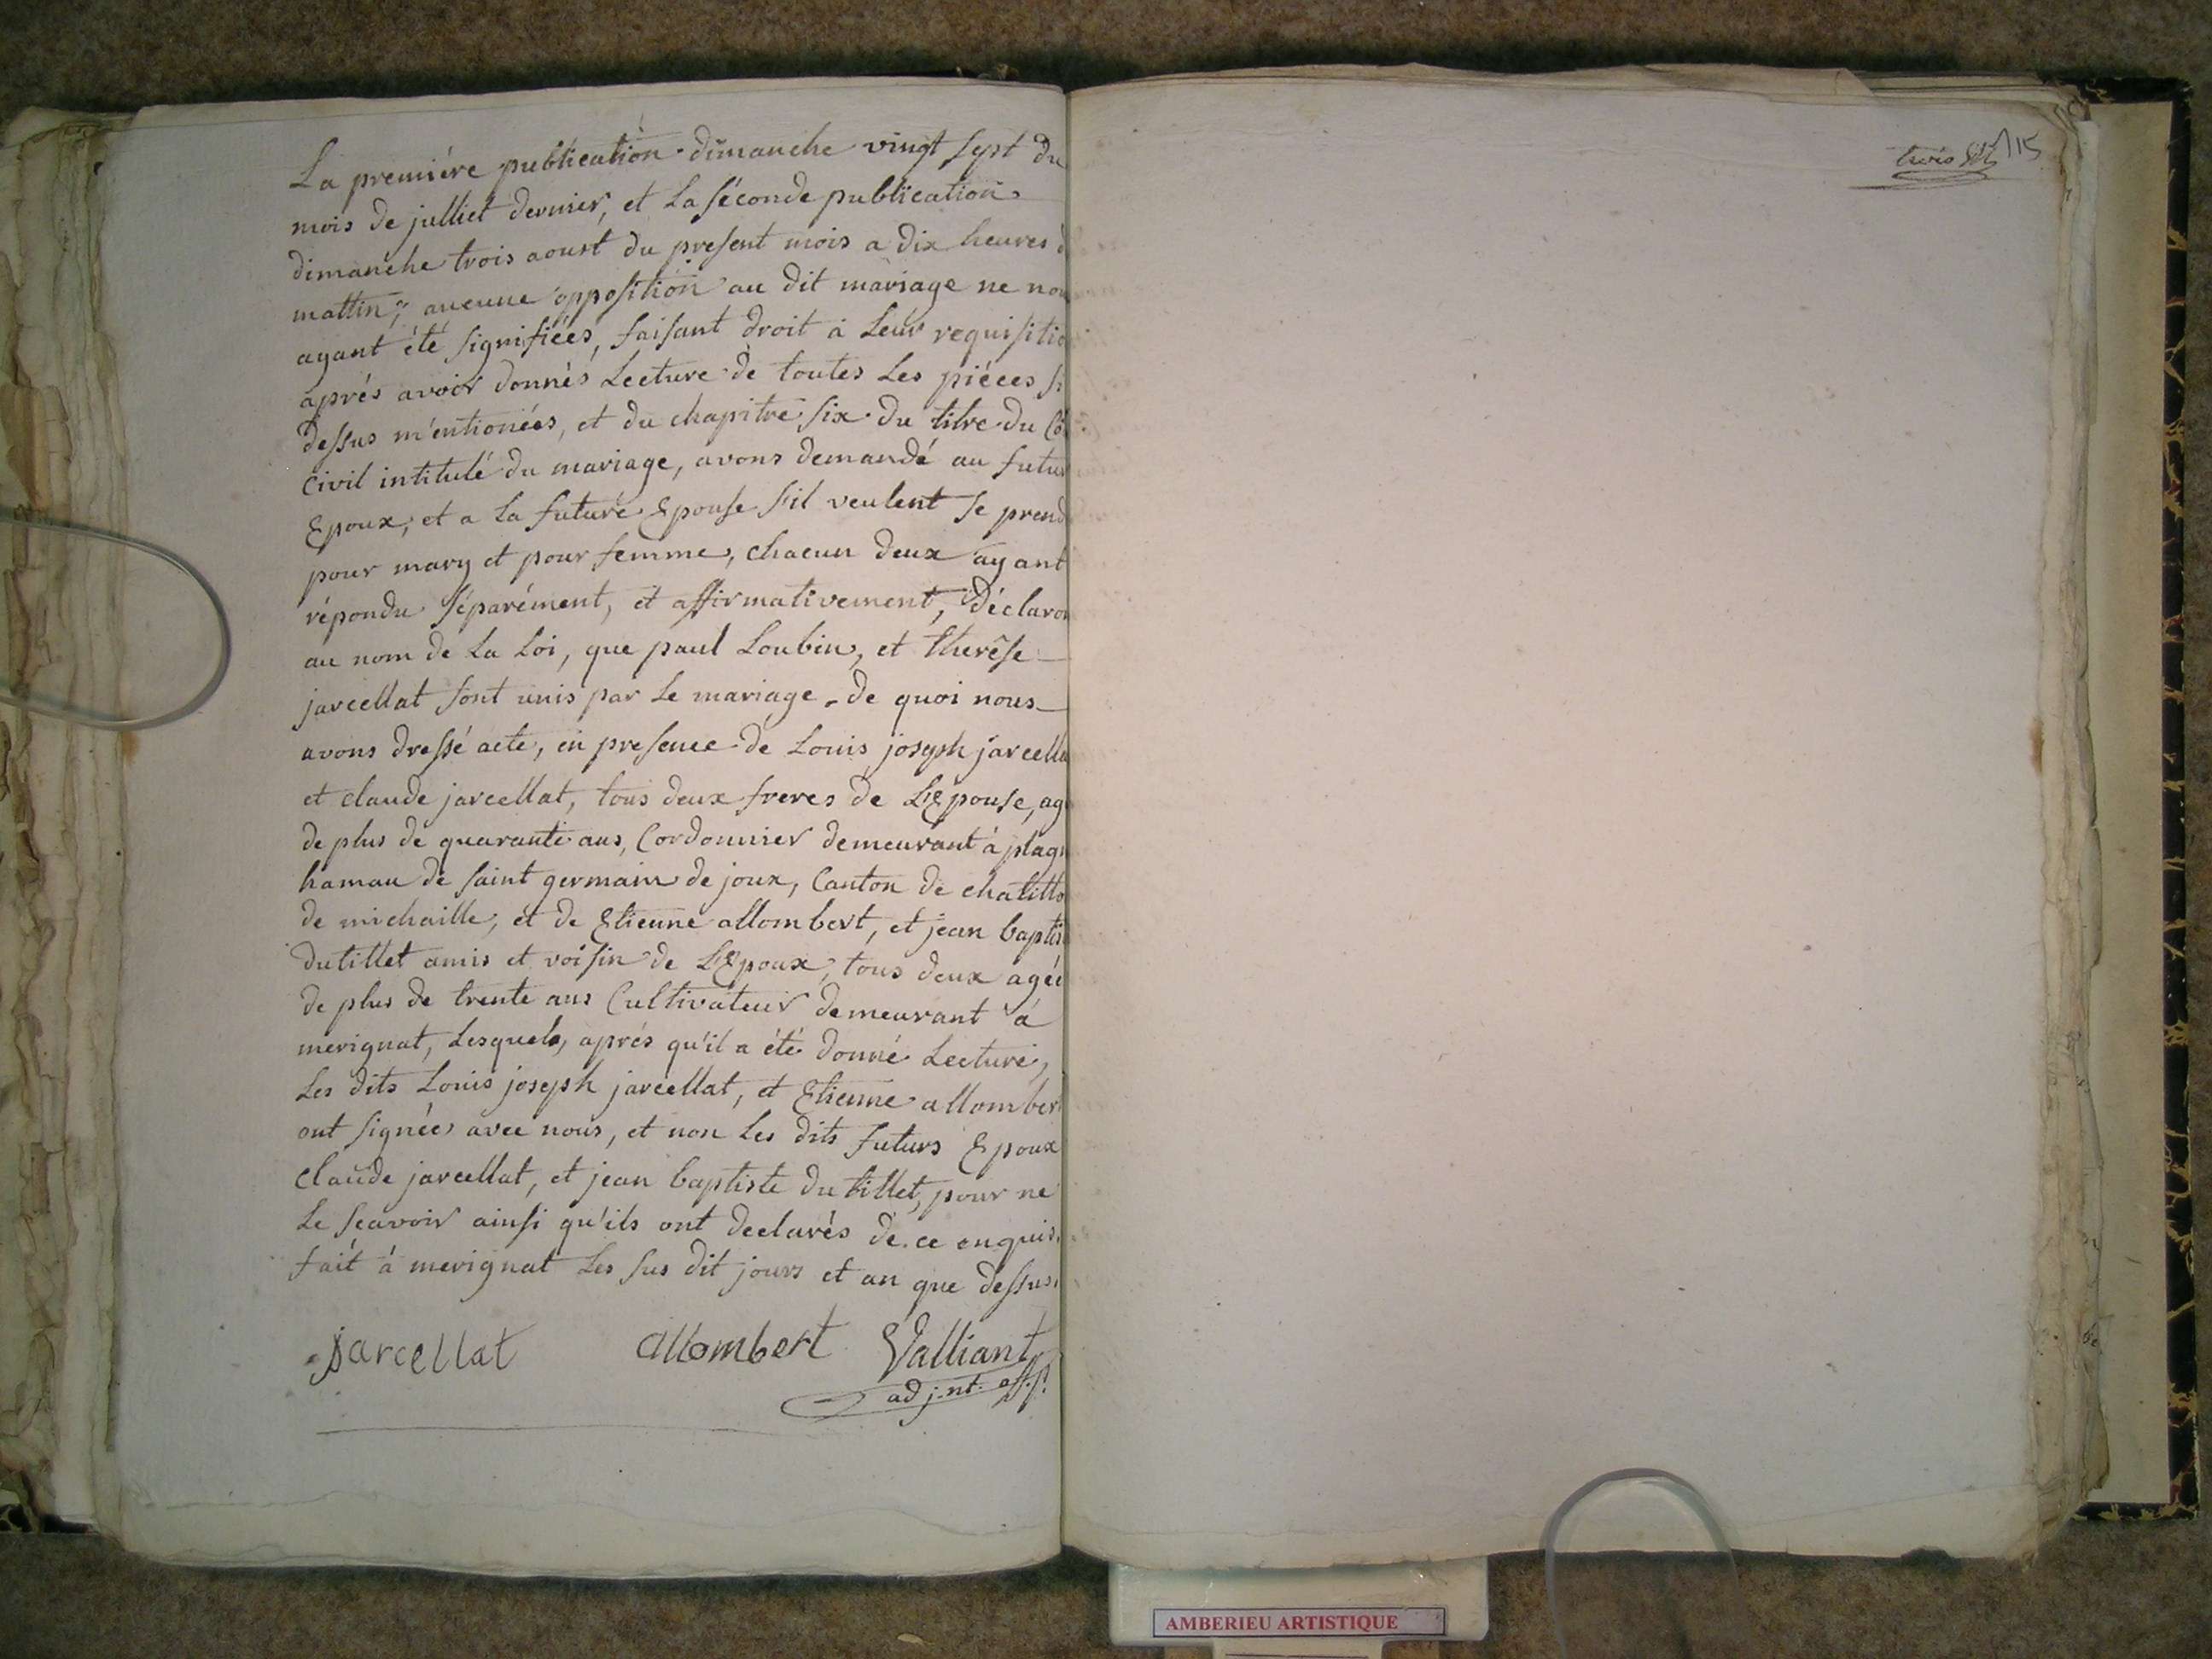 La premiére publication dimanche vingt sept du
mois de julliet dernier, et La séconde publication
dimanche trois aoust du present mois a dix heures d
mattin, aucune opposition au dit mariage ne nou
ayant été signifiées, faisant droit à Leur requisitio
aprés avoir donnés Lecture de toutes Les piéces si
dessus mentionées, et du chapitre six du titre du Co
Civil intitulé du mariage, avons demandé au futur
Epoux, et a La future Epouse s'il veulent se prend
pour mary et pour femme, chacun deux ayant
répondu séparément, et affirmativement, déclaron
au nom de La Loi, que paul Loubin, et therêse
jarcellat sont unis par Le mariage. de quoi nous
avons dressé acte, en presence de Louis joseph jarcella
et claude jarcellat, tous deux freres de L'Epouse, ag
de plus de quarante ans, Cordonnier demeurant à plagn
hamau de saint germain de joux, Canton de chatillo
de michaille, et de Etienne allombert, et jean baptis
dutillet amis et voisin de L'Epoux, tous deux agée
de plus de trente ans Cultivateur demeurant à
merignat, Lesquels, aprés qu'il a été donné Lecture,
Les dits Louis joseph jarcellat, et Etienne allomber
ont signées avec nous, et non Les dits futurs Epoux
Claude jarcellat, et jean baptiste du tillet, pour ne
Le scavoir ainsi qu'ils ont declarés de ce enquis.
fait à merignat Les sus dit jours et an que dessus.
jarcellat allombert Valliant
adj.nt.
trois 15
AMBERIEU ARTISTIQUE